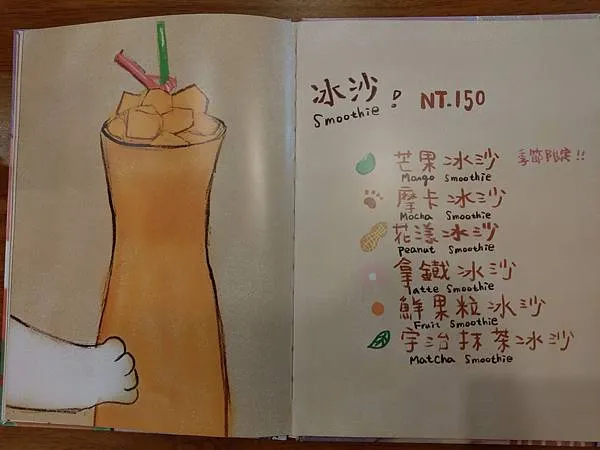 冰沙! NT.150
Smoothie
芒果冰沙 季節限定!!
Mango Smoothie
摩卡冰沙
Mocha Smoothie
花漾冰沙
Peanut Smoothie
拿鐵冰沙
Latte Smoothie
鮮果粒冰沙
Fruit Smoothie
宇治抹茶冰沙
Matcha Smoothie